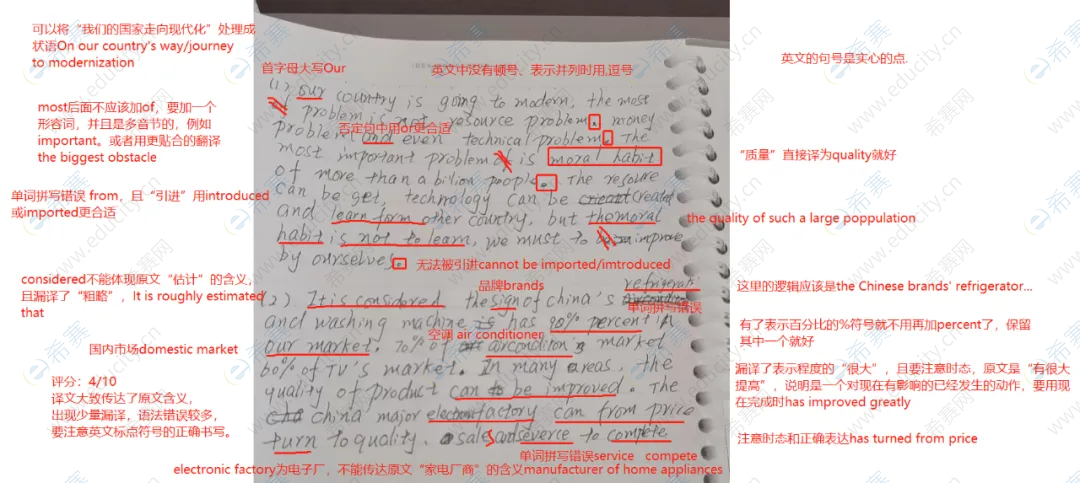 可以将“我们的国家走向现代化”处理成
状语On our country's way/journey
to modernization
首字母大写Our
英文中没有顿号、表示并列时用,逗号
英文的句号是实心的点.
most后面不应该加of，要加一个
形容词，并且是多音节的，例如
important。或者用更贴合的翻译
the biggest obstacle
否定句中用or更合适
“质量”直接译为quality就好
单词拼写错误 from，且“引进”用introduced
或imported更合适
the quality of such a large poppulation
(1) our country is going to modern, the most
problem is not resource problem、money
problem and even technical problem。The
most important problem is moral habit
of more than a bilion people。The resoure
can be get, technology can be created
and learn form other country, but the moral
habit is not to learn, we must to improve
by ourselves。
无法被引进cannot be imported/imtroduced
considered不能体现原文“估计”的含义，
且漏译了“粗略”，It is roughly estimated
that
品牌brands
单词拼写错误
这里的逻辑应该是the Chinese brands' refrigerator...
空调 air conditioner
有了表示百分比的%符号就不用再加percent了，保留
其中一个就好
国内市场domestic market
(2) It is considered the sign of china's refrigerati
and washing machine has 90% percent in
our market. 70% of aircondition's market
60% of TV's market. In many areas, the
quality of product can to be improved. The
china major electronic factory can from price
turn to quality. sales and severce to compete
漏译了表示程度的“很大”，且要注意时态，原文是“有很大
提高”，说明是一个对现在有影响的已经发生的动作，要用现
在完成时has improved greatly
评分：4/10
译文大致传达了原文含义，
出现少量漏译，语法错误较多，
要注意英文标点符号的正确书写。
注意时态和正确表达has turned from price
单词拼写错误service compete
electronic factory为电子厂，不能传达原文“家电厂商”的含义manufacturer of home appliances
希赛网
www.educity.cn